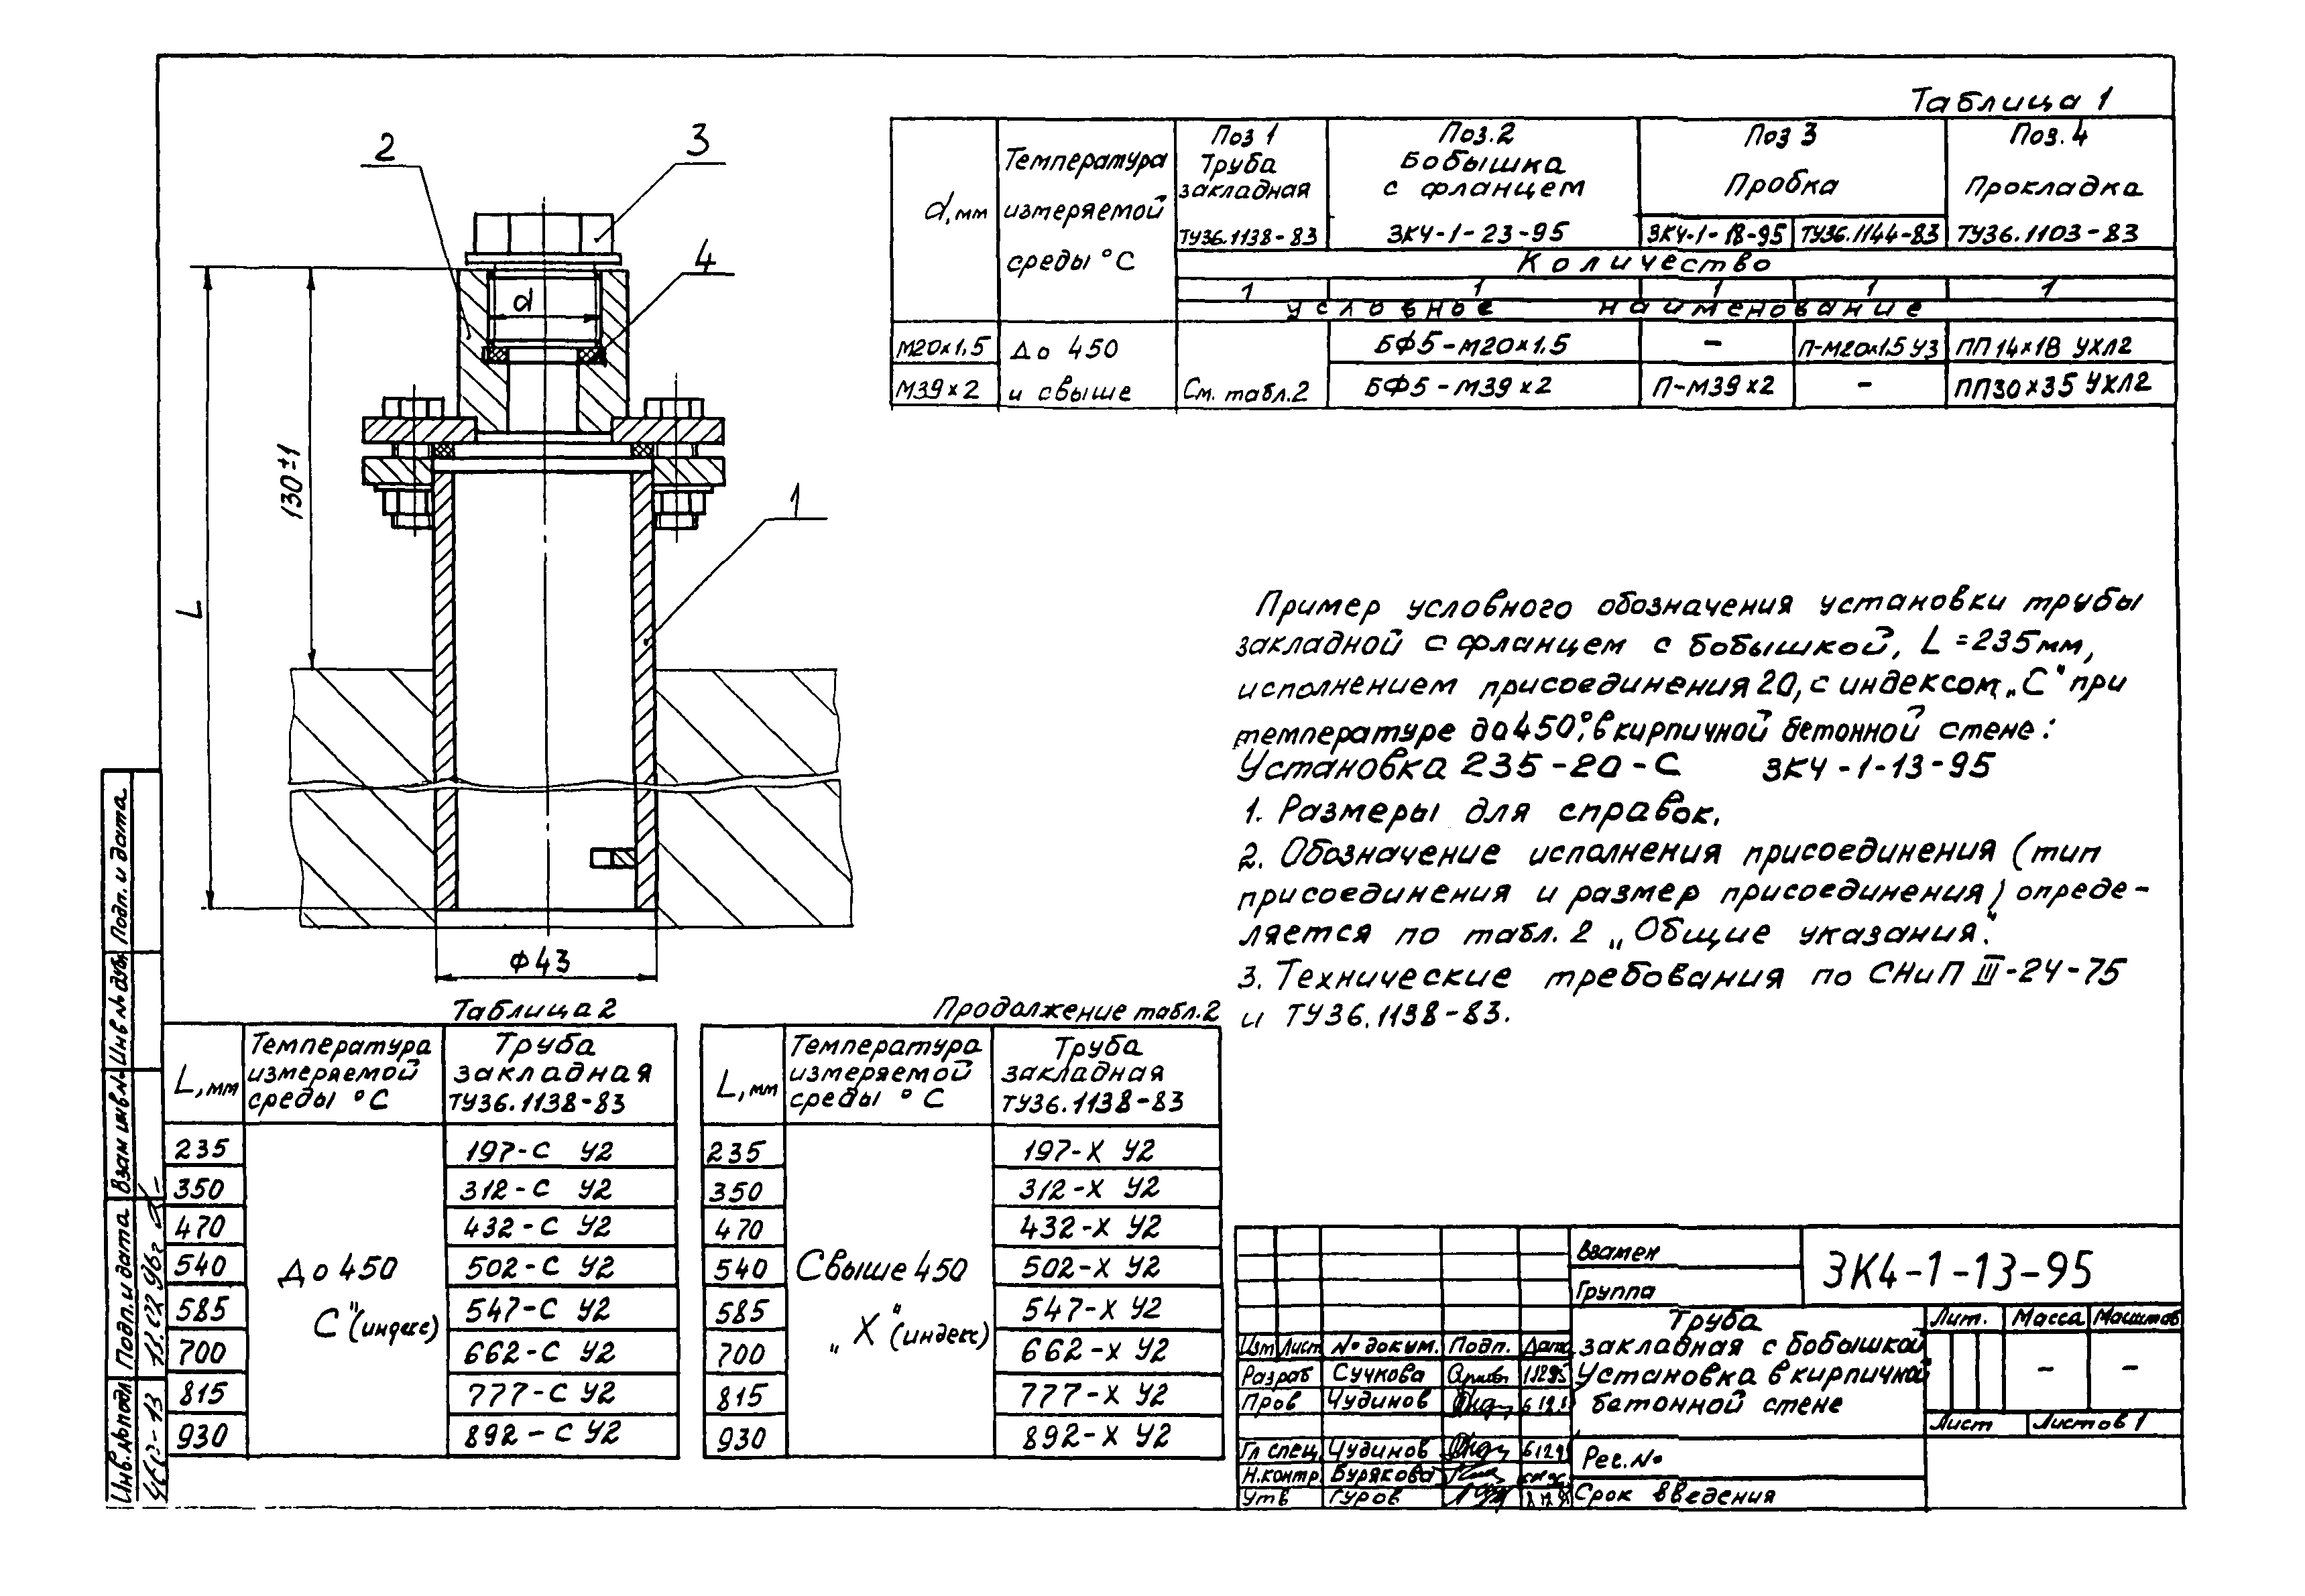 2
3
4
d
130±1
L
1
Ф43
Таблица 1
d, мм
Температура
измеряемой
среды °С
Поз 1
Труба
закладная
ТУ36.1138-83
Поз.2
Бобышка
с фланцем
ЗК4-1-23-95
Поз 3
Пробка
ЗК4-1-18-95
ТУ36.1144-83
Поз.4
Прокладка
ТУ36.1103-83
Количество
1 1 1 1 1
условное наименование
М20х1,5
До 450
БФ5-М20х1.5
-
П-М20х1.5 У3
ПП 14х18 УХЛ2
М39х2
и свыше
См. табл.2
БФ5-М39х2
П-М39х2
-
ПП30х35 УХЛ2
Пример условного обозначения установки трубы
закладной с фланцем с бобышкой, L=235мм,
исполнением присоединения 20, с индексом „С" при
температуре до 450°, в кирпичной бетонной стене:
Установка 235-20-С ЗК4-1-13-95
1. Размеры для справок.
2. Обозначение исполнения присоединения (тип
присоединения и размер присоединения) опреде-
ляется по табл. 2 „Общие указания."
3. Технические требования по СНиП III-24-75
и ТУ36.1138-83.
Таблица 2
L, мм
Температура
измеряемой
среды °С
Труба
закладная
ТУ36.1138-83
235 197-С У2
350 312-С У2
470 432-С У2
540 502-С У2
585 547-С У2
700 662-С У2
815 777-С У2
930 892-С У2
До 450
С" (индекс)
Продолжение табл.2
L, мм
Температура
измеряемой
среды °С
Труба
закладная
ТУ36.1138-83
235 197-Х У2
350 312-Х У2
470 432-Х У2
540 502-Х У2
585 547-Х У2
700 662-Х У2
815 777-Х У2
930 892-Х У2
Свыше 450
„Х" (индекс)
Взамен
Группа
ЗК4-1-13-95
Труба
закладная с бобышкой
Установка в кирпичной
бетонной стене
Лит. Масса Масштаб
- -
Лист Листов 1
Изм Лист № докум. Подп. Дата
Разраб Сучкова
Пров Чудинов
Гл спец Чудинов
Н.контр. Бурякова
Утв Гуров
Рег.№
Срок введения
Подп. и дата
Инв № дубл
Взам инв №
Подп. и дата
Инв. № подл